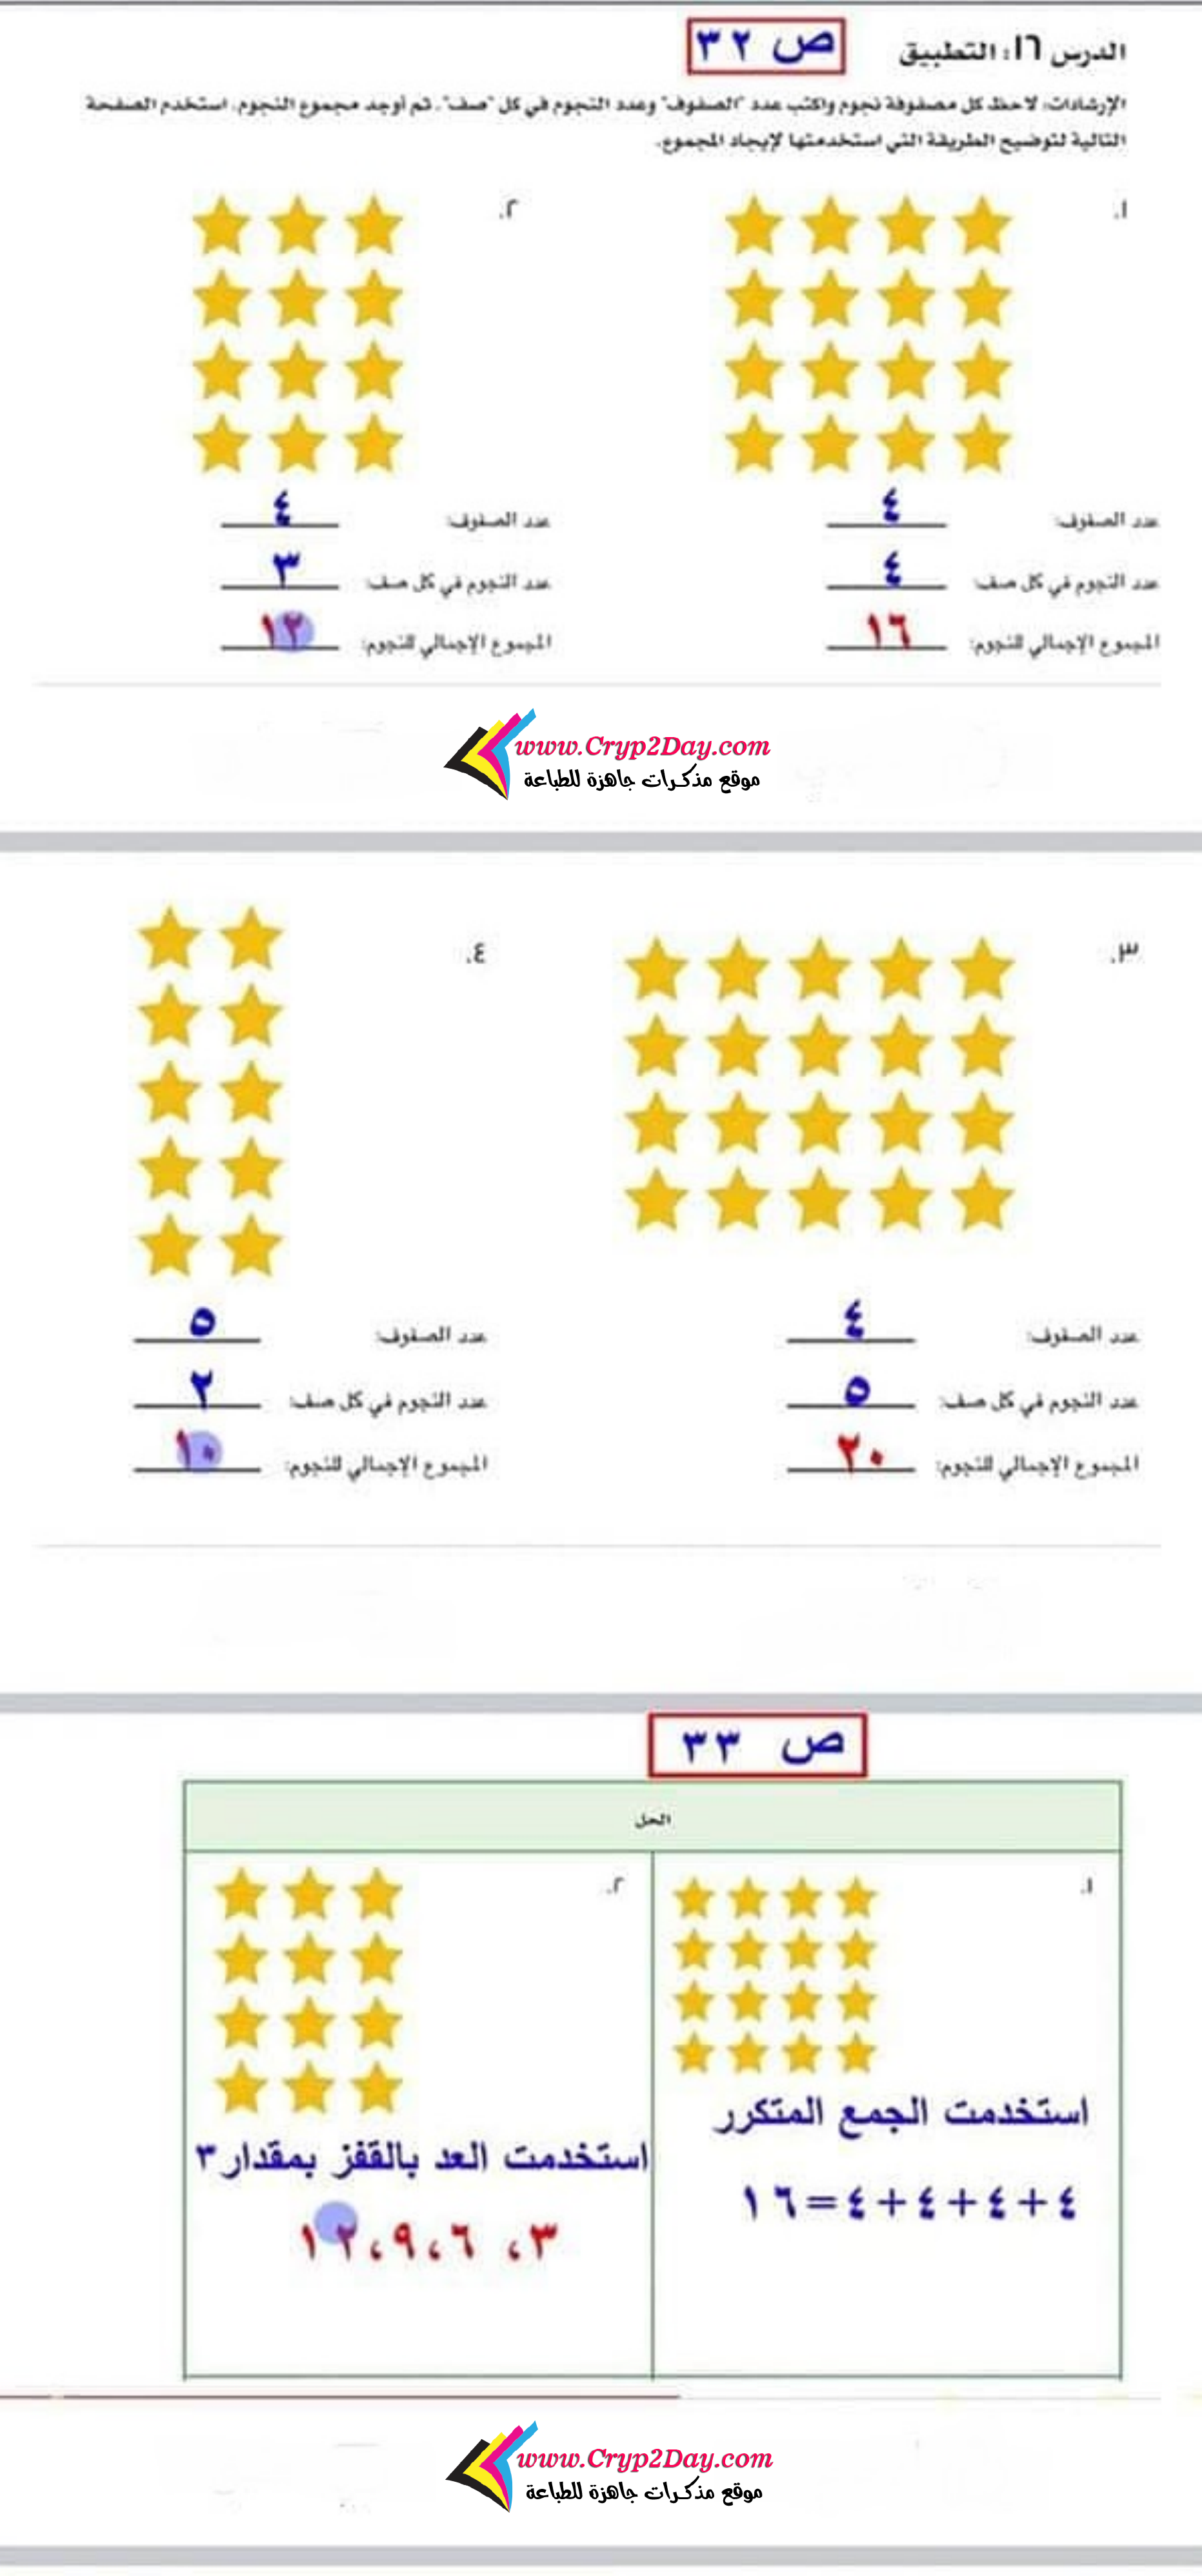 الدرس ١٦: التطبيق
ص ٣٢
الإرشادات: لاحظ كل مصفوفة نجوم واكتب عدد "الصفوف" وعدد النجوم في كل "صف". ثم أوجد مجموع النجوم. استخدم الصفحة
التالية لتوضيح الطريقة التي استخدمتها لإيجاد المجموع.
١.
عدد الصفوف: ٤
عدد النجوم في كل صف: ٤
المجموع الإجمالي للنجوم: ١٦
٢.
عدد الصفوف: ٤
عدد النجوم في كل صف: ٣
المجموع الإجمالي للنجوم: ١٢
www.Cryp2Day.com
موقع مذكرات جاهزة للطباعة
٣.
عدد الصفوف: ٤
عدد النجوم في كل صف: ٥
المجموع الإجمالي للنجوم: ٢٠
٤.
عدد الصفوف: ٥
عدد النجوم في كل صف: ٢
المجموع الإجمالي للنجوم: ١٠
ص ٣٣
الحل
١.
استخدمت الجمع المتكرر
٤+٤+٤+٤=١٦
٢.
استخدمت العد بالقفز بمقدار٣
٣، ٦،٩،١٢
www.Cryp2Day.com
موقع مذكرات جاهزة للطباعة